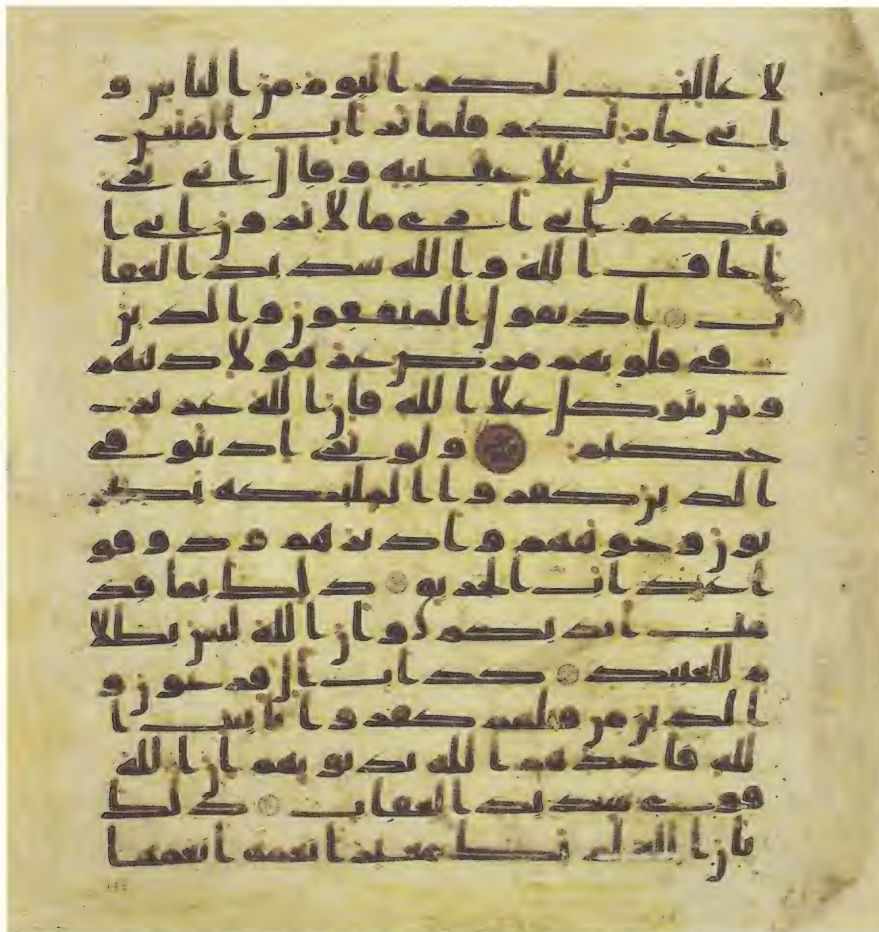 لا غالب لكم اليوم من الناس و
اني جار لكم فلما ترات الفئتن
نكص علا عقبيه وقال اني بري
منكم اني ارى ما لا ترون اني ا
خاف الله والله شديد العقا
ب اذ يقول المنفقون والذين
في قلوبهم مرض غر هولا دينهم
ومن يتوكل علا الله فان الله عزيز
حكيم ولو ترى اذ يتوفى
الذين كفروا الملئكة يضر
بون وجوههم وادبرهم وذوقو
ا عذاب الحريق ذلك بما قد
مت ايديكم وان الله ليس بظلا
م للعبيد كداب ال فرعون و
الذين من قبلهم كفروا بايت ا
لله فاخذهم الله بذنوبهم ان الله
قوي شديد العقاب ذلك
بان الله لم يك مغيرا نعمة انعمها